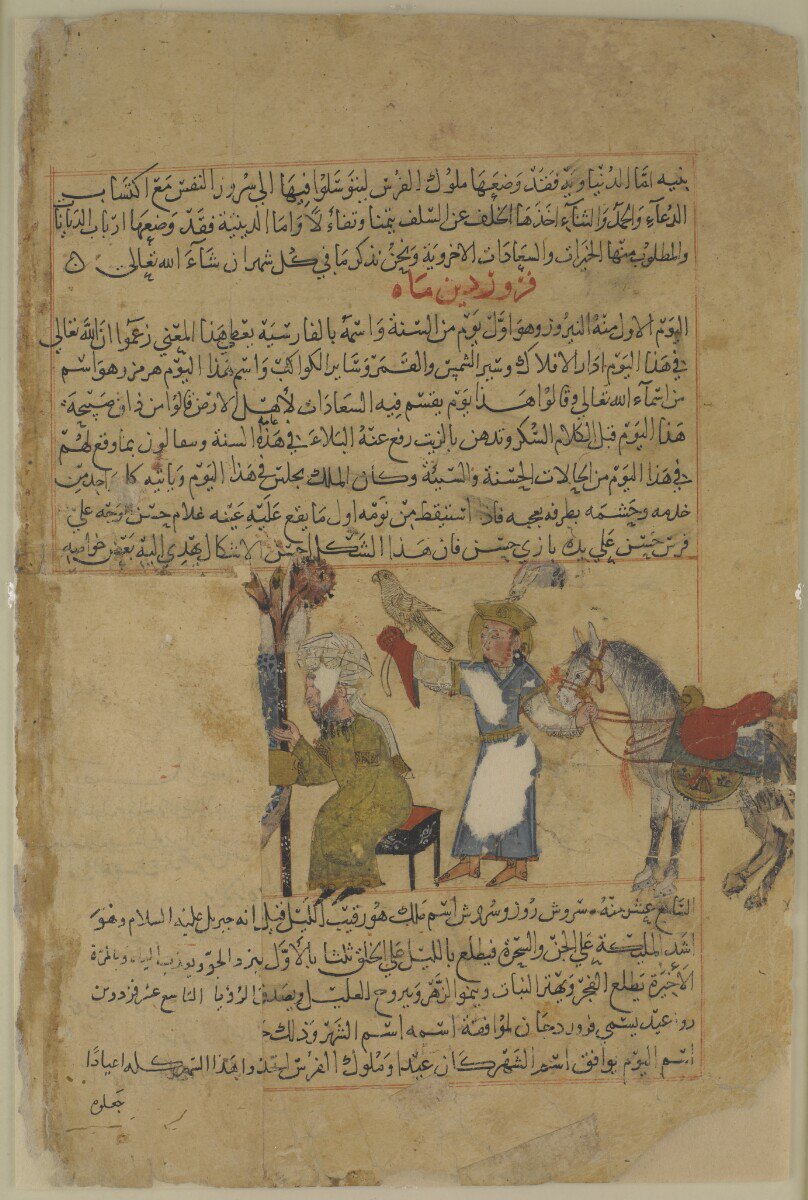 بنيه امّا الدنياوية فقد وضعها ملوك الفرس ليتوسّلوا فيها الى سرور النفس مع اكتساب
الدعاء والحمد والثناء اخذها الخلف عن السلف تيمنا وتفاءلا واما الدينية فقد وضعها ارباب الديانات
والمطلوب منها الخيرات والسعادات الاخروية ونحن نذكر ما في كل شهر ان شاء الله تعالى
فروردين ماه
اليوم الاول منه النيروز وهو اوّل يوم من السنة واسمه بالفارسية يعطي هذا المعنى زعموا ان الله تعالى
في هذا اليوم ادار الافلاك وسير الشمس والقمر وساير الكواكب واسم هذا اليوم هرمز وهو اسم
من اسماء الله تعالى وقالوا هذا يوم يقسم فيه السعادات لأهل الارض قالوا من ذاق صبيحة
هذا اليوم قبل الكلام السكر وتدهن بالزيت رفع عنه البلاء في عامة هذه السنة وسعالون بما وقع لهم
في هذا اليوم من الحالات الحسنة والسيئة وكان الملك يجلس في هذا اليوم وياتيه كل واحد من
خدمه وحشمه بطرفه يعجبه فاذا استيقظ من نومه اول ما يقع عليه عينه غلام حسن الوجه على
فرس حسن على يده بازي حسن فان هذا الشكل احسن الاشكال يهدي اليه بعض خواصه
السابع عشر منه سروش روز وسروش اسم ملك هو رقيب الليل قيل انه جبريل عليه السلام وهو
اشد المليكة على الجن والسحرة فيطلع بالليل على الخلق ثلثا بالأول يبرد الجو ويعذب المياه وبالمرة
الأخيرة يطلع الفجر ويهتز النبات وينمو الزهر ويروح العليل ويصدق الرؤيا التاسع عشر فروردين
روز عيد يسمى فروردجان لموافقة اسمه اسم الشهر وذلك
اسم اليوم يوافق اسم الشهر كان عيدا وملوك الفرس اتخذوا هذا الشهر كله اعيادا
جعلوه